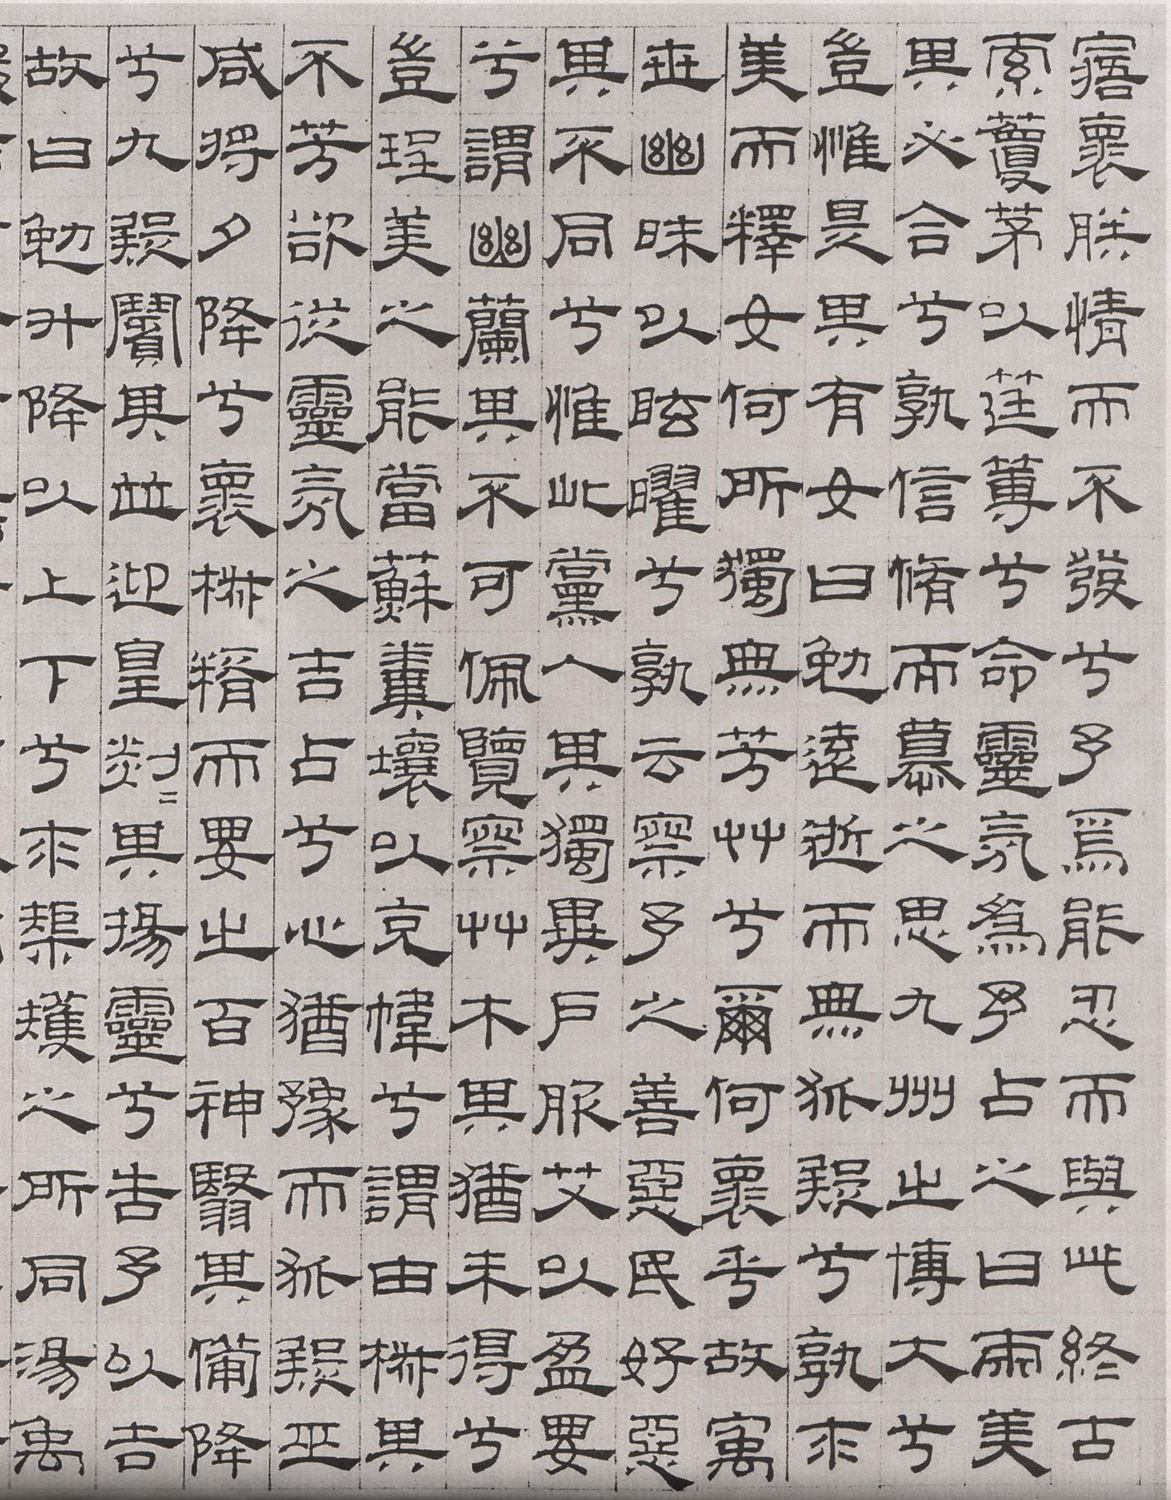 寤懷朕情而不發兮予焉能忍而與此終古
索藑茅以筳篿兮命靈氛爲予占之曰兩美
其必合兮孰信脩而慕之思九州之博大兮
豈惟是其有女曰勉遠逝而無狐疑兮孰求
美而釋女何所獨無芳艸兮爾何懷乎故㝢
世幽昧以眩曜兮孰云察予之善惡民好惡
其不同兮惟此黨人其獨異戶服艾以盈要
兮謂幽蘭其不可佩覽察艸木其猶未得兮
豈珵美之能當蘇糞壤以充幃兮謂申椒其
不芳欲從靈氛之吉占兮心猶豫而狐疑巫
咸將夕降兮懷椒糈而要之百神翳其備降
兮九疑繽其並迎皇剡〻其揚靈兮告予以吉
故曰勉升降以上下兮求榘矱之所同湯禹